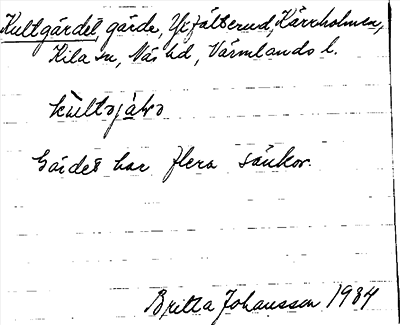 Kultgärdet, gärde, Yt. jälterud, Kärrholmen,
Kila sn, Näs hd, Värmlands l.
kùltɔjäḷɔ
Gärdet har flera sänkor.
Britta Johansson 1934